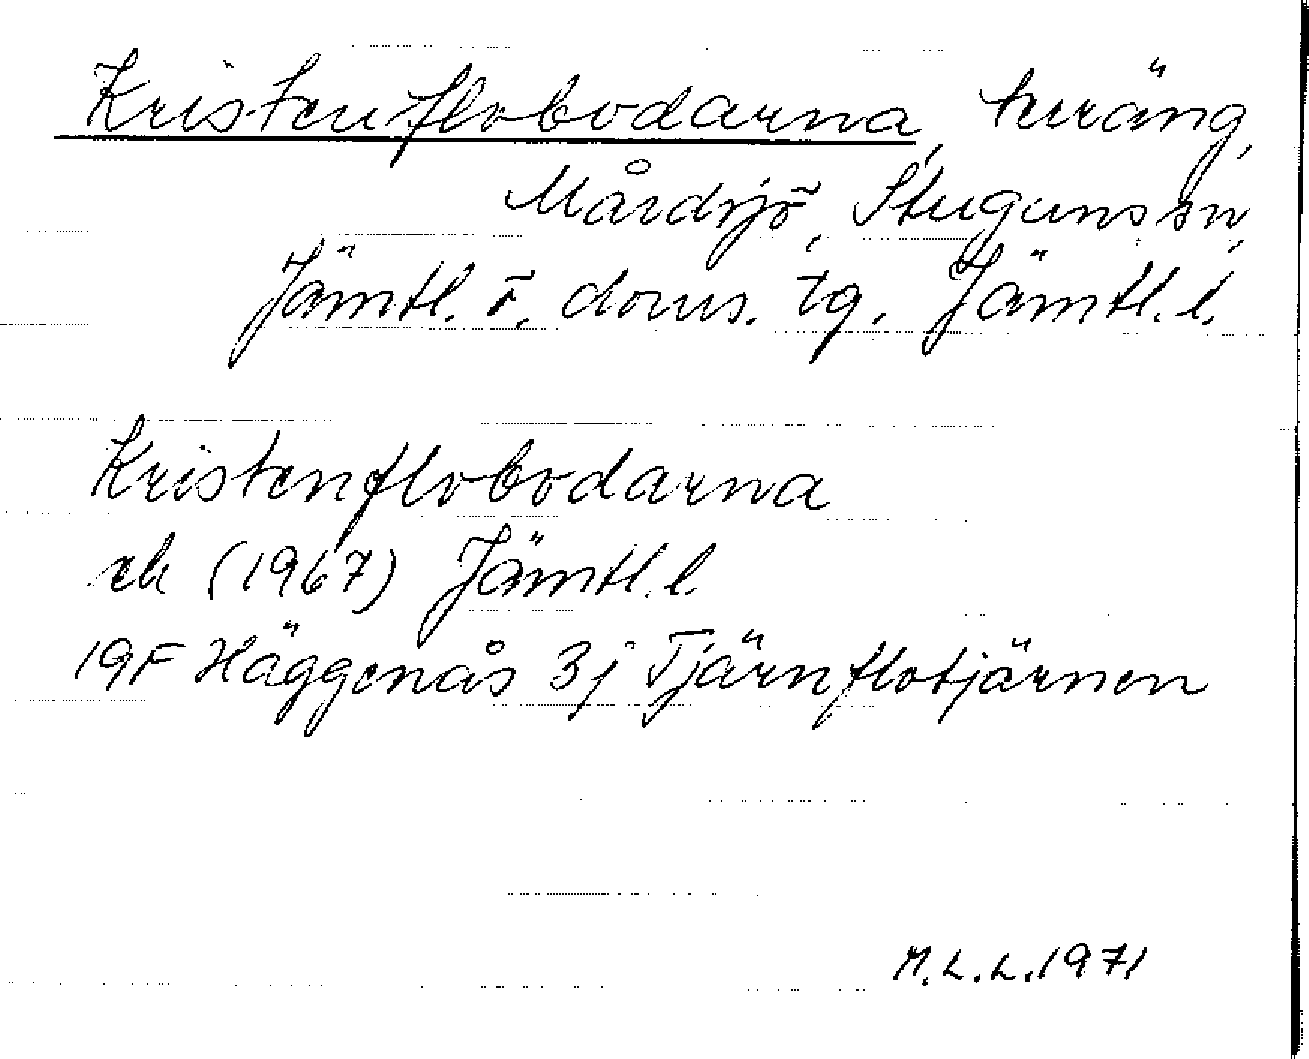 Kristenflobodarna, terräng,
Mårdsjö, Stuguns sn,
Jämtl. ö. doms. tg, Jämtl. l.
Kristenflobodarna
ek (1967) Jämtl. l.
19F Häggenås 3j Tjärnflotjärnen
M.L.L.1971